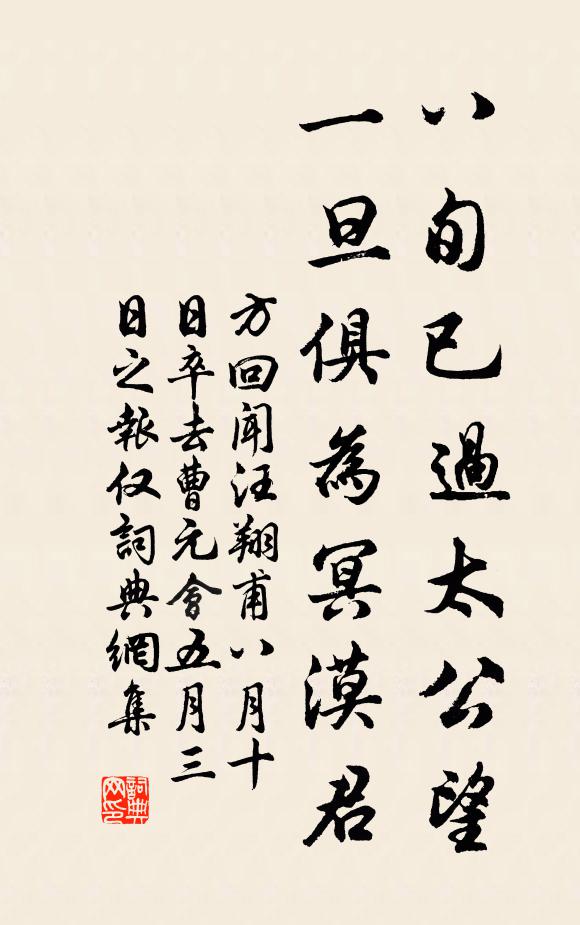 八旬已過太公望
一旦俱為冥漠君
方回聞汪翔甫八月十
日卒去曹元會五月三
日之報仅詞典網集
詞典
网印